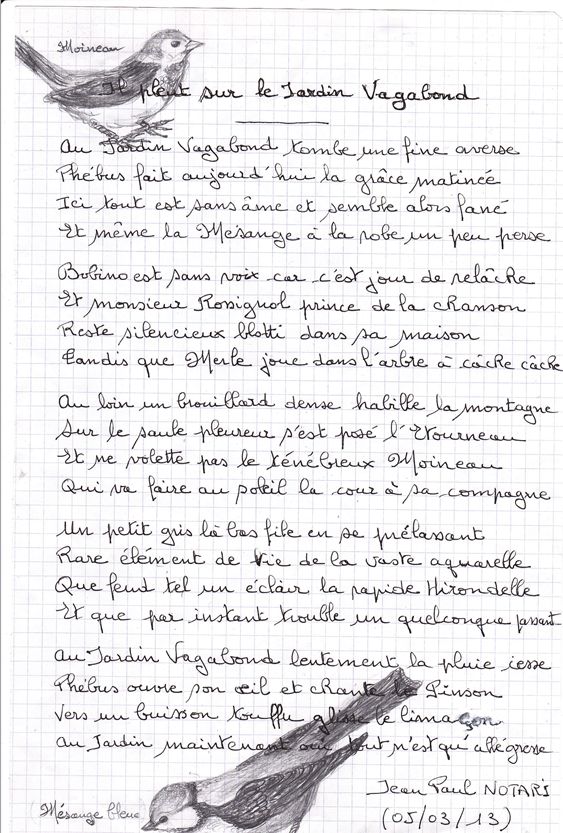 Moineau
Il pleut sur le Jardin Vagabond
Au Jardin Vagabond tombe une fine averse
Phébus fait aujourd'hui la grâce matinée
Ici tout est sans âme et semble alors fané
Et même la Mésange à la robe un peu perse
Bobino est sans voix car c'est jour de relâche
Et monsieur Rossignol prince de la chanson
Reste silencieux blotti dans sa maison
Tandis que Merle joue dans l'arbre à câche câche
Au loin un brouillard dense habille la montagne
Sur le saule pleureur s'est posé l'Etourneau
Et ne volette pas le ténébreux Moineau
Qui va faire au soleil la cour à sa compagne
Un petit gris là bas file en se prélassant
Rare élément de vie de la vaste aquarelle
Que fend tel un éclair la rapide Hirondelle
Et que par instant trouble un quelconque passant
Au Jardin Vagabond lentement la pluie cesse
Phébus ouvre son œil et chante le Pinson
Vers un buisson touffu glisse le limaçon
Au Jardin maintenant oui tout n'est qu'allégresse
Jean Paul NOTARI
(05/03/13)
Mésange bleue